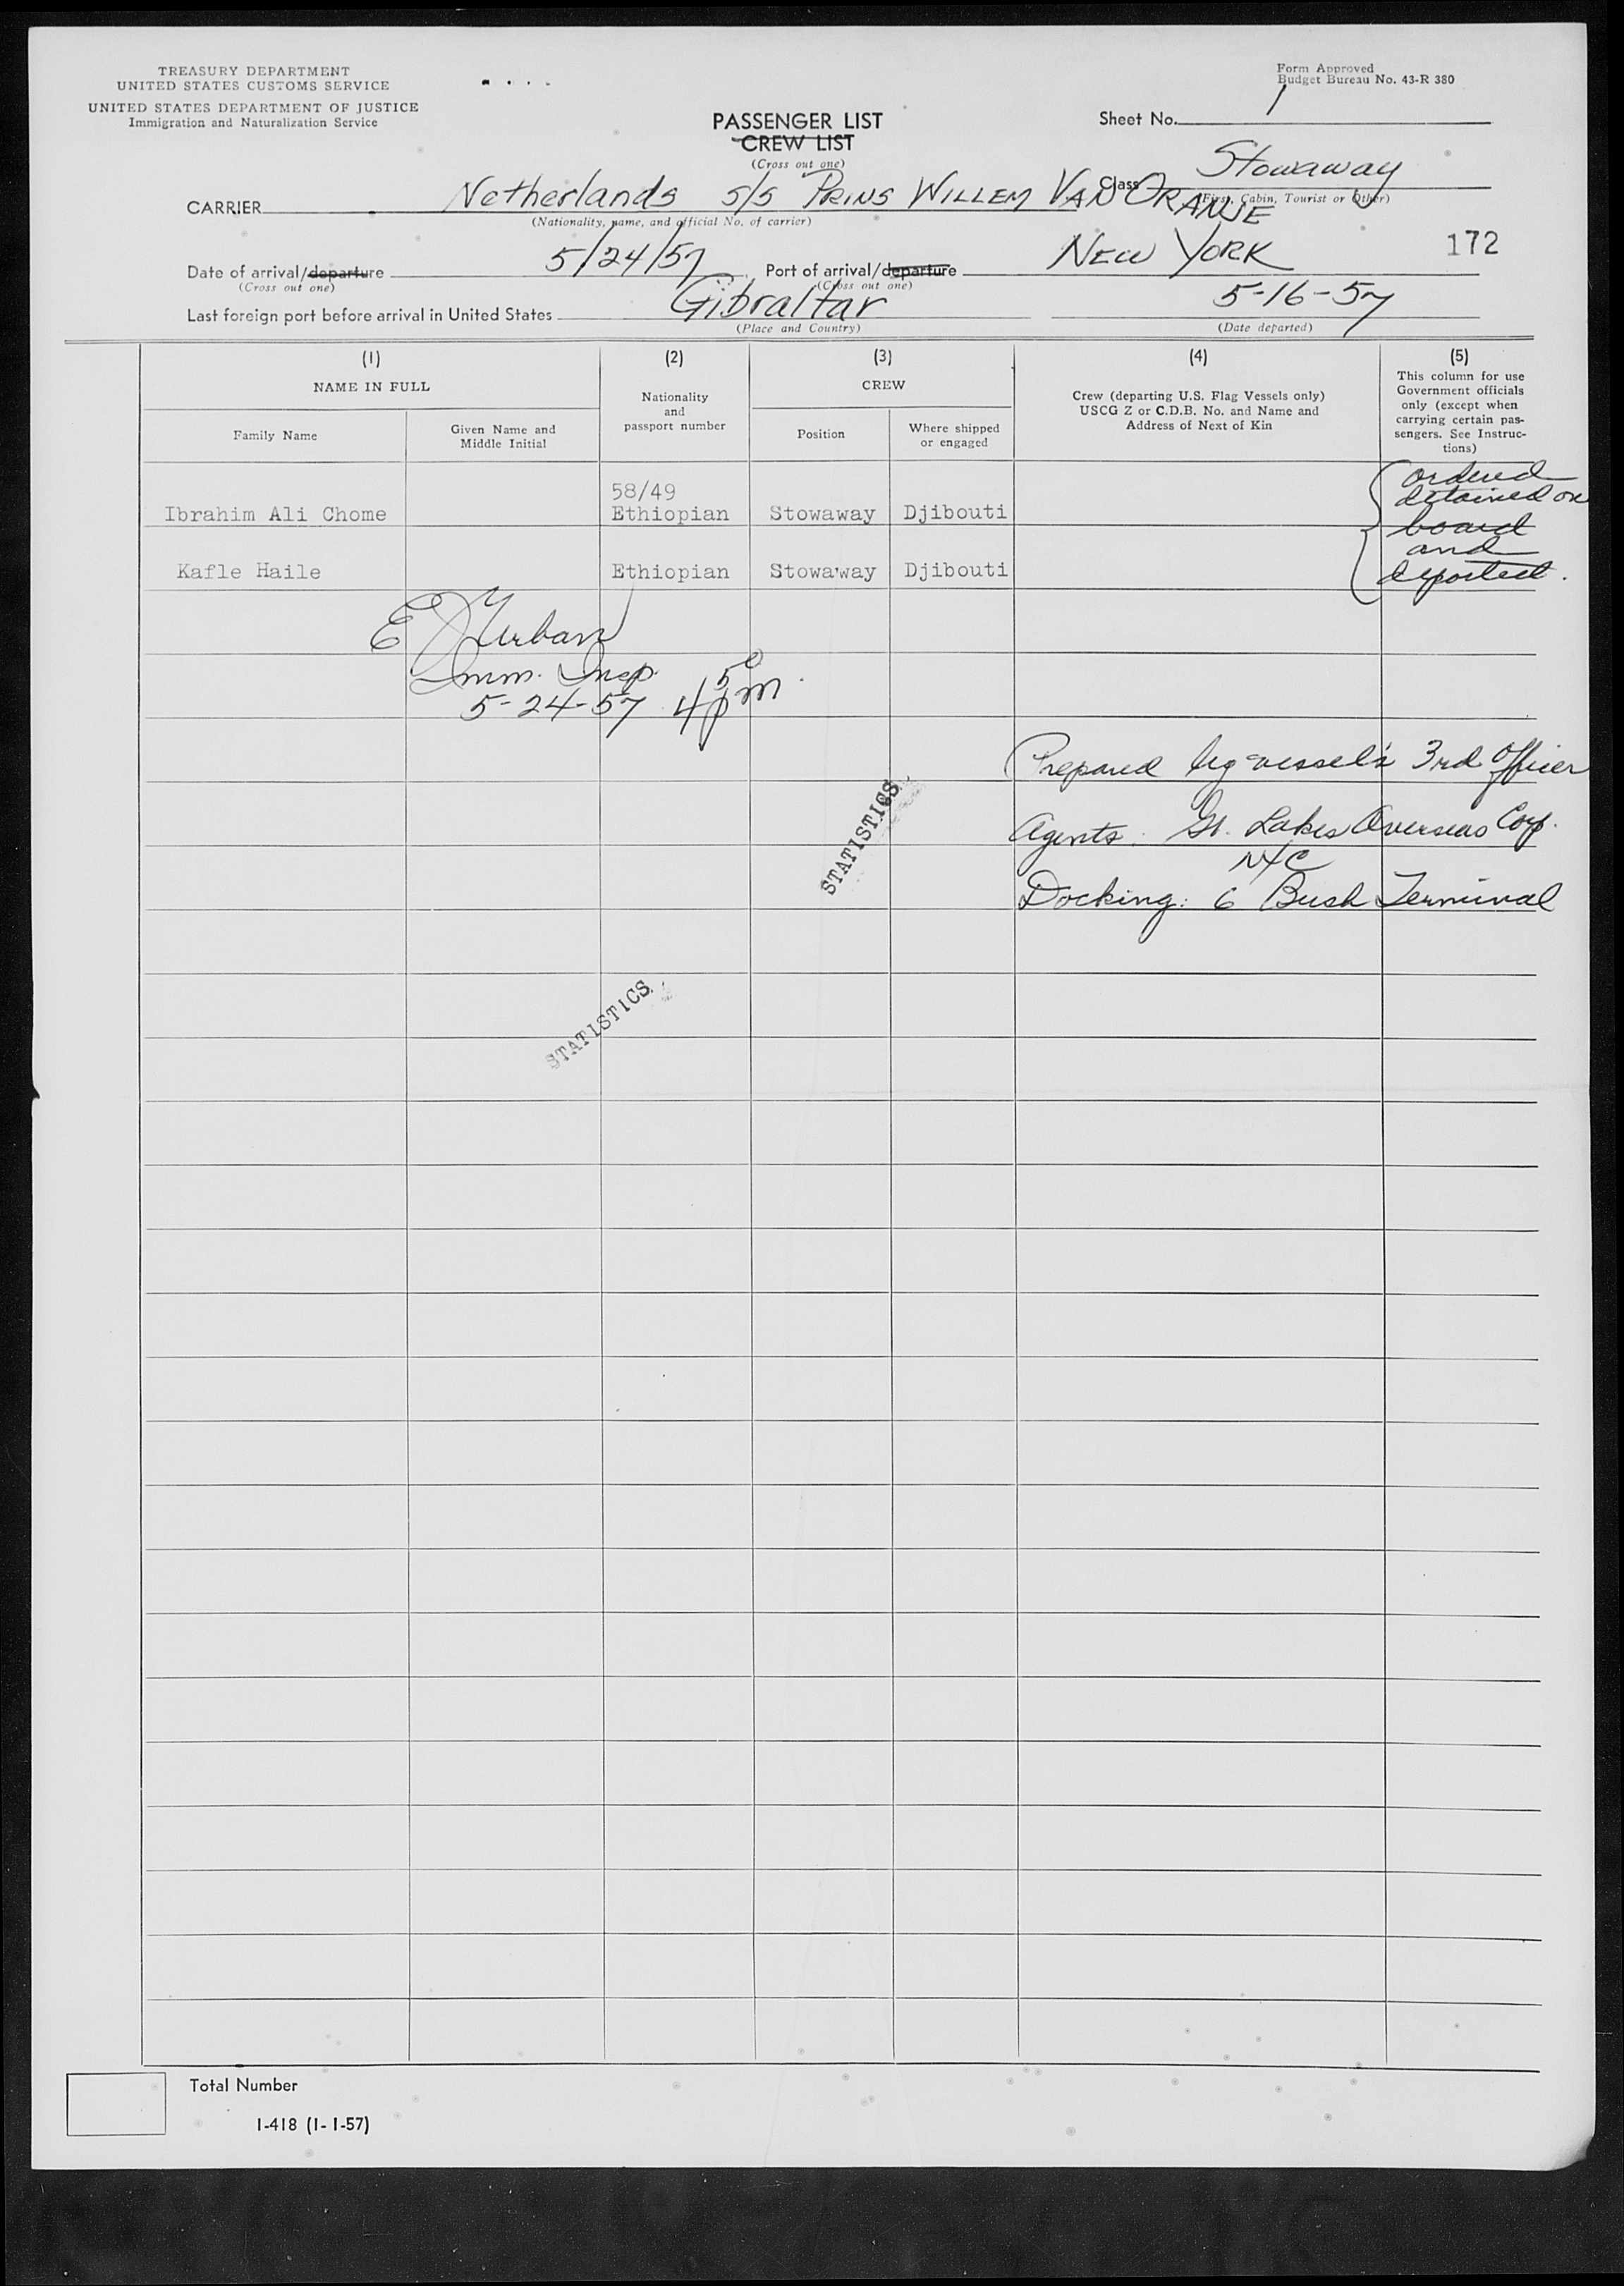 TREASURY DEPARTMENT
UNITED STATES CUSTOMS SERVICE
UNITED STATES DEPARTMENT OF JUSTICE
Immigration and Naturalization Service
Form Approved
Budget Bureau No. 43-R 380
PASSENGER LIST
CREW LIST
(Cross out one)
Sheet No. 1
Class Stowaway
(First, Cabin, Tourist or Other)
CARRIER Netherlands S/S PRINS WILLEM VAN ORANJE
(Nationality, name, and official No. of carrier)
Date of arrival/departure 5/24/57 Port of arrival/departure NEW YORK 172
(Cross out one) (Cross out one)
Last foreign port before arrival in United States Gibraltar 5-16-57
(Place and Country) (Date departed)
(1) (2) (3) (4) (5)
NAME IN FULL
Family Name
Given Name and
Middle Initial
Nationality
and
passport number
CREW
Position
Where shipped
or engaged
Crew (departing U.S. Flag Vessels only)
USCG Z or C.D.B. No. and Name and
Address of Next of Kin
This column for use
Government officials
only (except when
carrying certain pas-
sengers. See Instruc-
tions)
58/49
Ibrahim Ali Chome Ethiopian Stowaway Djibouti
Kafle Haile Ethiopian Stowaway Djibouti
ordered
detained on
board
and
deported.
E J Urban
Imm. Insp.
5-24-57 4 50 pm.
Prepared by vessel's 3rd Officer
Agents: Gt. Lakes Overseas Corp.
NYC
Docking: 6 Bush Terminal
STATISTICS
STATISTICS
Total Number
I-418 (1-1-57)